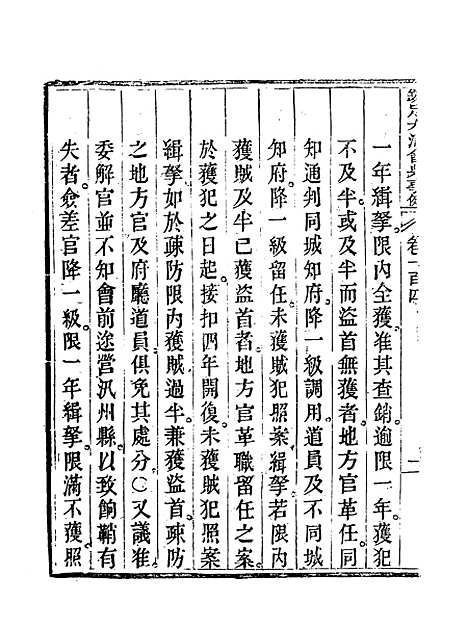 欽定大清會典事例 卷一百四
一年緝拏限內全獲准其查銷逾限一年獲犯
不及半或及半而盜首無獲者地方官革任同
知通判同城知府降一級調用道員及不同城
知府降一級留任未獲賊犯照案緝拏若限內
獲賊及半已獲盜首者地方官革職留任之案
於獲犯之日起接扣四年開復未獲賊犯照案
緝拏如於疎防限內獲賊過半兼獲盜首疎防
之地方官及府廳道員俱免其處分○又議准
委解官並不知會前途營汛州縣以致餉鞘有
失者僉差官降一級限一年緝拏限滿不獲照